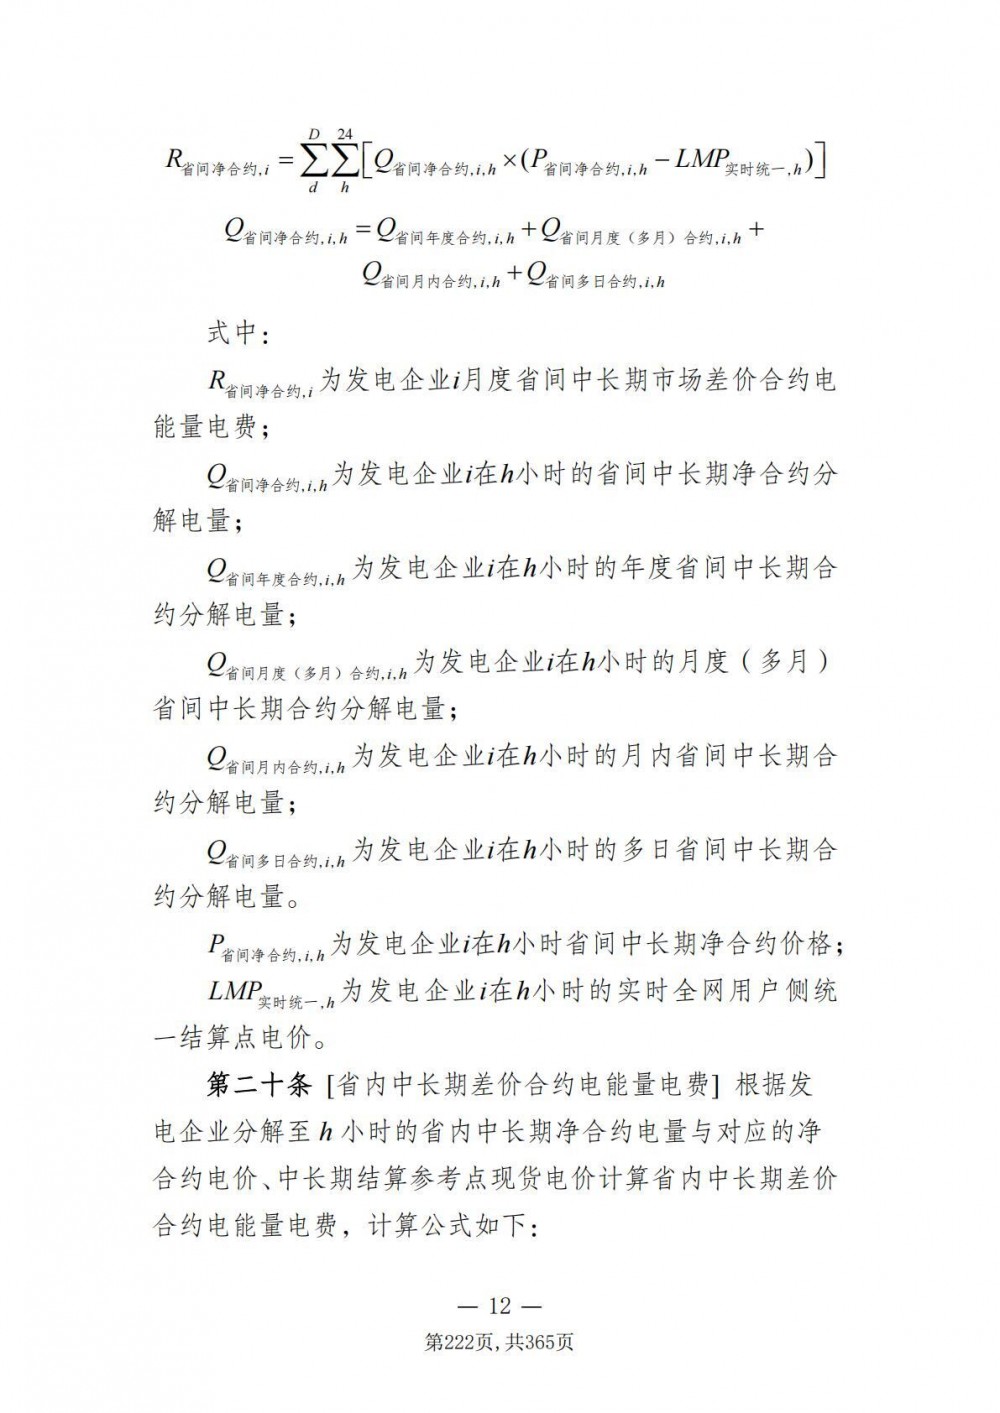 R省间净合约,i = ∑(d→D)∑(h→24)[Q省间净合约,i,h×(P省间净合约,i,h−LMP实时统一,h)]
Q省间净合约,i,h = Q省间年度合约,i,h + Q省间月度（多月）合约,i,h +
Q省间月内合约,i,h + Q省间多日合约,i,h
式中：
R省间净合约,i 为发电企业i月度省间中长期市场差价合约电
能量电费；
Q省间净合约,i,h为发电企业i在h小时的省间中长期净合约分
解电量；
Q省间年度合约,i,h 为发电企业i在h小时的年度省间中长期合
约分解电量；
Q省间月度（多月）合约,i,h 为发电企业i在h小时的月度（多月）
省间中长期合约分解电量；
Q省间月内合约,i,h 为发电企业i在h小时的月内省间中长期合
约分解电量；
Q省间多日合约,i,h 为发电企业i在h小时的多日省间中长期合
约分解电量。
P省间净合约,i,h 为发电企业i在h小时省间中长期净合约价格；
LMP实时统一,h 为发电企业i在h小时的实时全网用户侧统
一结算点电价。
第二十条 [省内中长期差价合约电能量电费] 根据发
电企业分解至 h 小时的省内中长期净合约电量与对应的净
合约电价、中长期结算参考点现货电价计算省内中长期差价
合约电能量电费，计算公式如下：
— 12 —
第222页,共365页